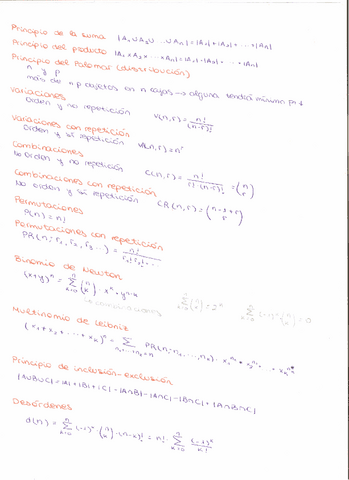 Principio de la suma |A₁∪A₂∪ ... ∪Aₙ| = |A₁|+|A₂|+...+|Aₙ|
Principio del producto |A₁×A₂×...×Aₙ| = |A₁|·|A₂|·...·|Aₙ|
Principio del Palomar (distribución)
n y p
más de n p objetos en n cajas → alguna tendrá mínimo p+1
Variaciones
Orden y no repetición V(n,r) = n!/(n-r)!
Variaciones con repetición
Orden y sí repetición VR(n,r) = nʳ
Combinaciones
No orden y no repetición C(n,r) = n!/(r!(n-r)!) = (n r)
Combinaciones con repetición
No orden y sí repetición CR(n,r) = (n-1+r r)
Permutaciones
P(n) = n!
Permutaciones con repetición
PR(n; r₁, r₂, r₃ ...) = n!/(r₁! r₂! ...)
Binomio de Newton
(x+y)ⁿ = Σₖ₌₀ⁿ (n k) · xᵏ · yⁿ⁻ᵏ
Σₖ₌₀ⁿ (n k) = 2ⁿ Σₖ₌₀ⁿ (-1)ᵏ (n k) = 0
Multinomio de Leibniz
(x₁ + x₂ + ... + xₖ)ⁿ = Σ PR(n; n₁, ..., nₖ) · x₁ⁿ¹ · x₂ⁿ² ...
Principio de inclusión-exclusión
|A∪B∪C| = |A| + |B| + |C| - |A∩B| - |A∩C| - |B∩C| + |A∩B∩C|
Desórdenes
d(n) = Σₖ₌₀ⁿ (-1)ᵏ · (n k) · (n-k)! = n! · Σₖ₌₀ⁿ (-1)ᵏ/k!